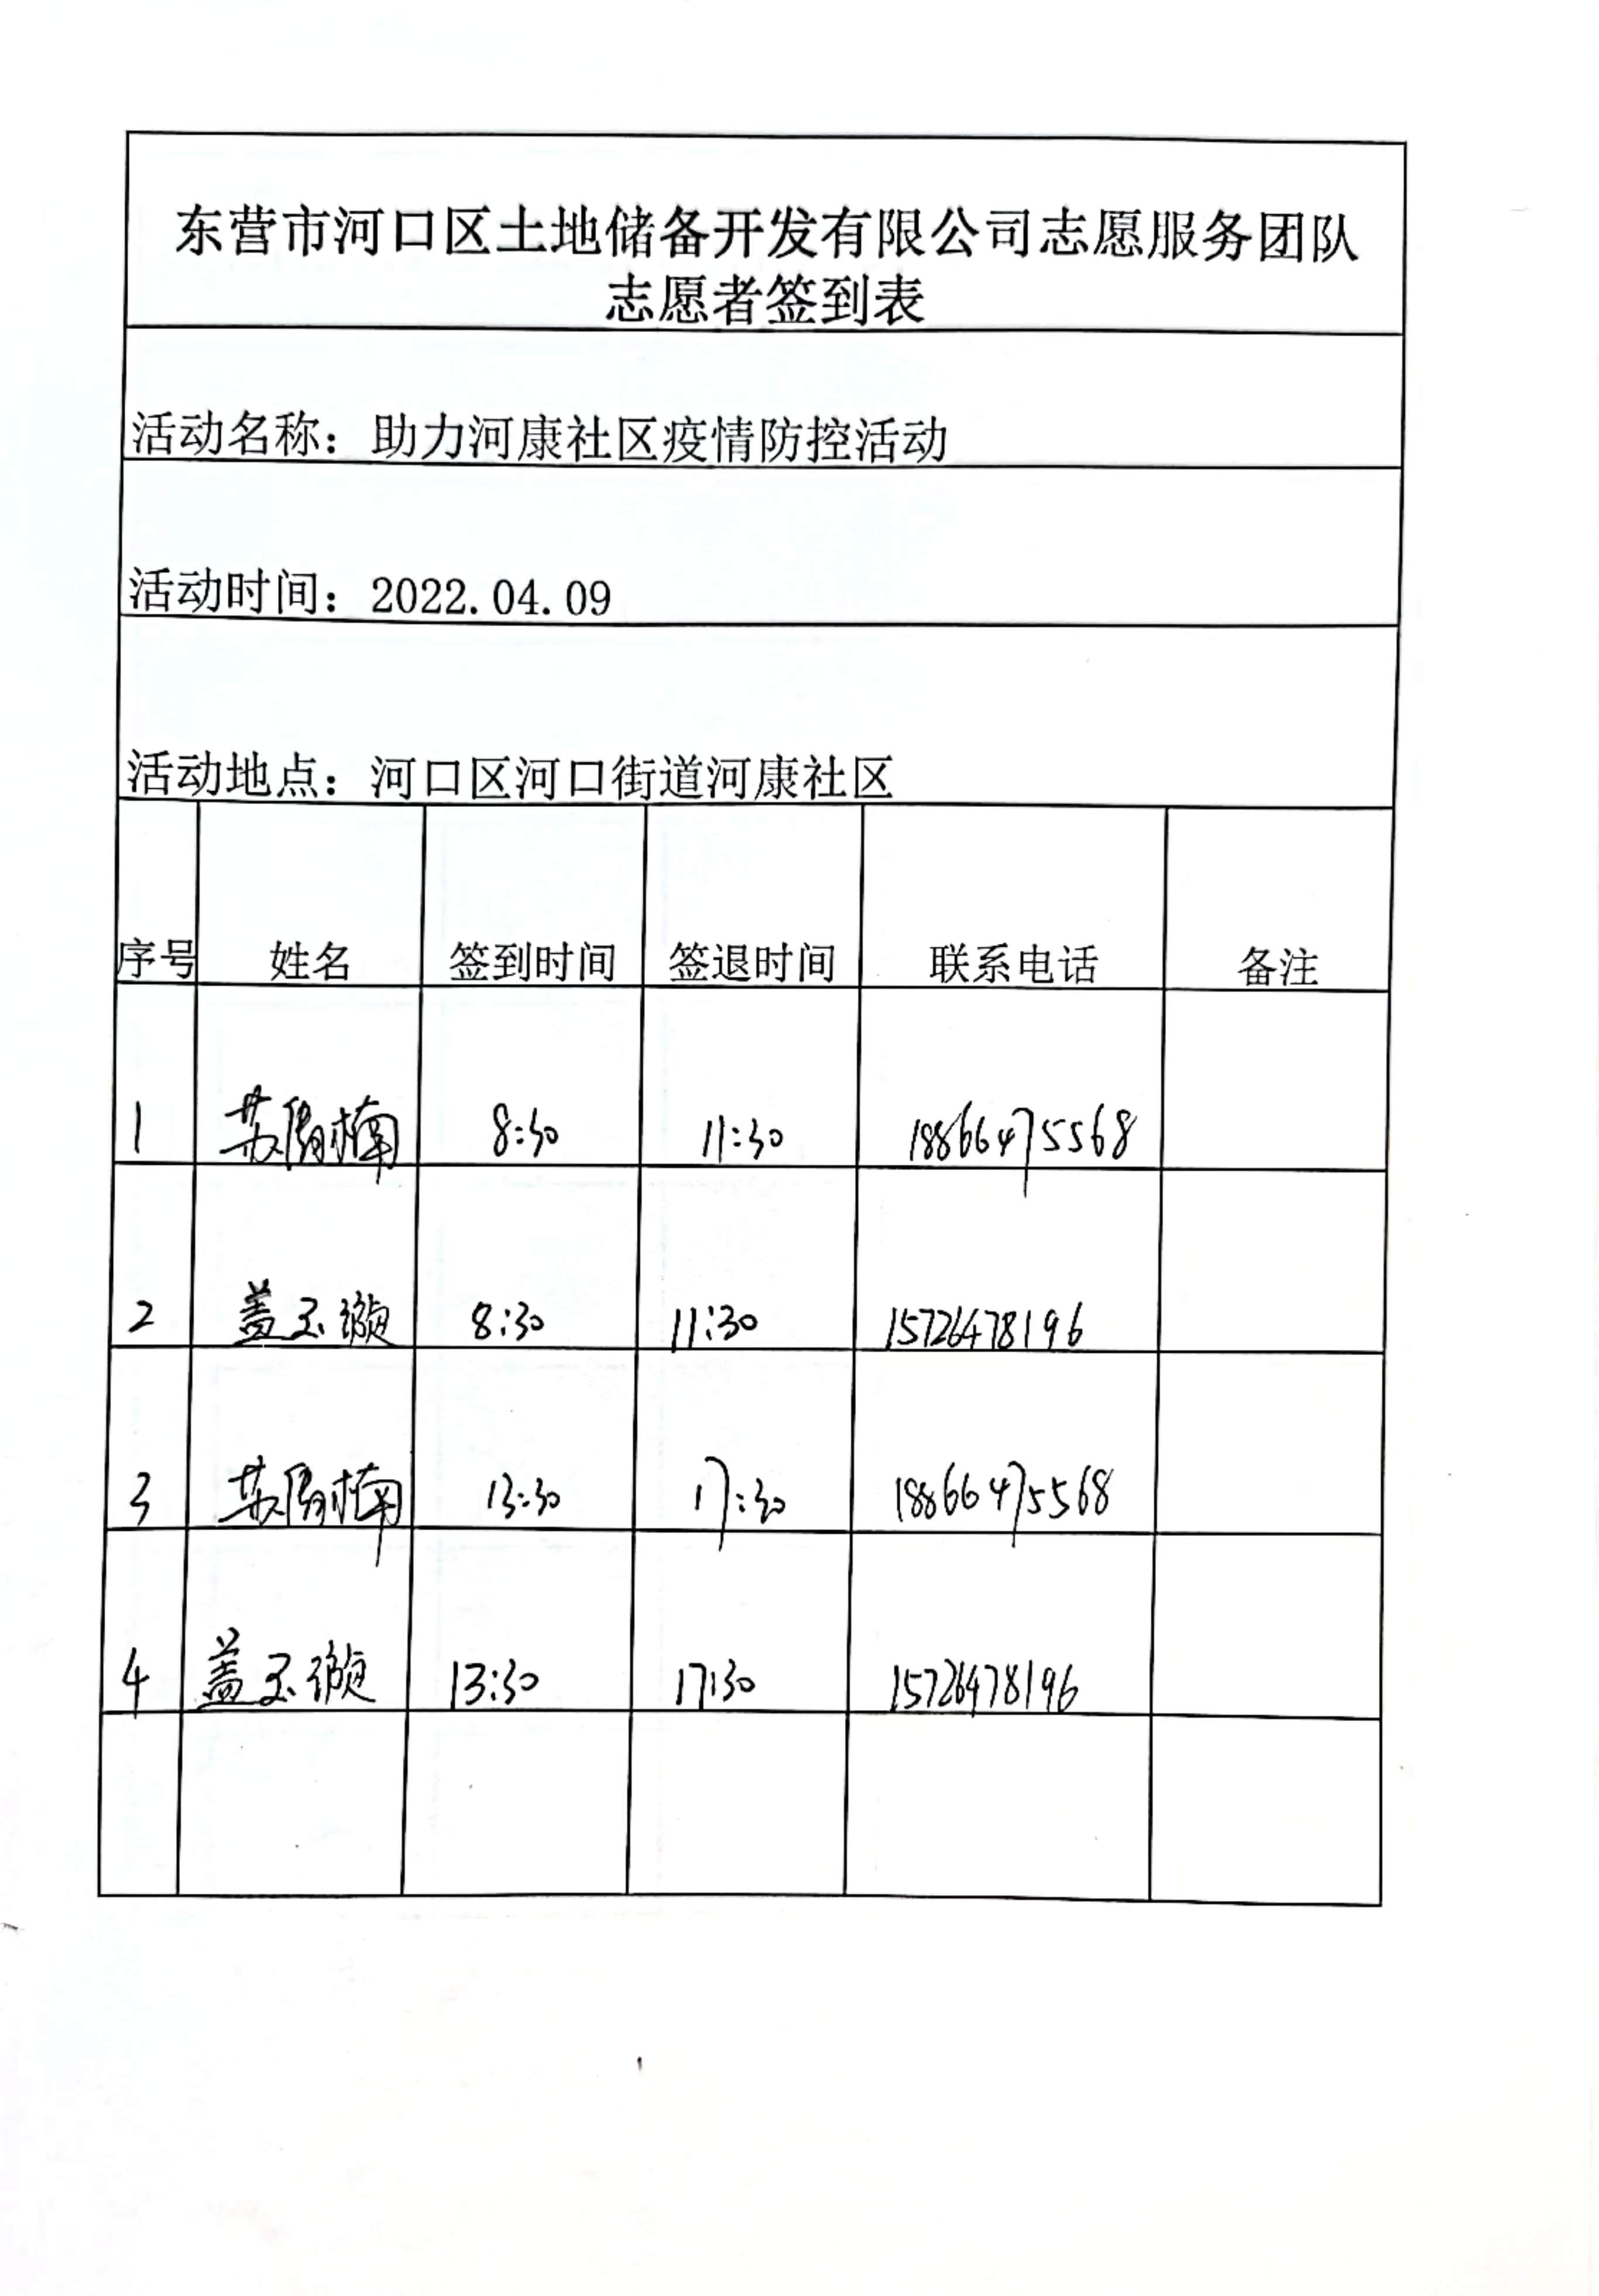 东营市河口区土地储备开发有限公司志愿服务团队
志愿者签到表
活动名称：助力河康社区疫情防控活动
活动时间：2022.04.09
活动地点：河口区河口街道河康社区
序号 姓名 签到时间 签退时间 联系电话 备注
1 苏楠 8:30 11:30 18866475568
2 盖玉璇 8:30 11:30 15726478196
3 苏楠 13:30 17:30 18866475568
4 盖玉璇 13:30 17:30 15726478196